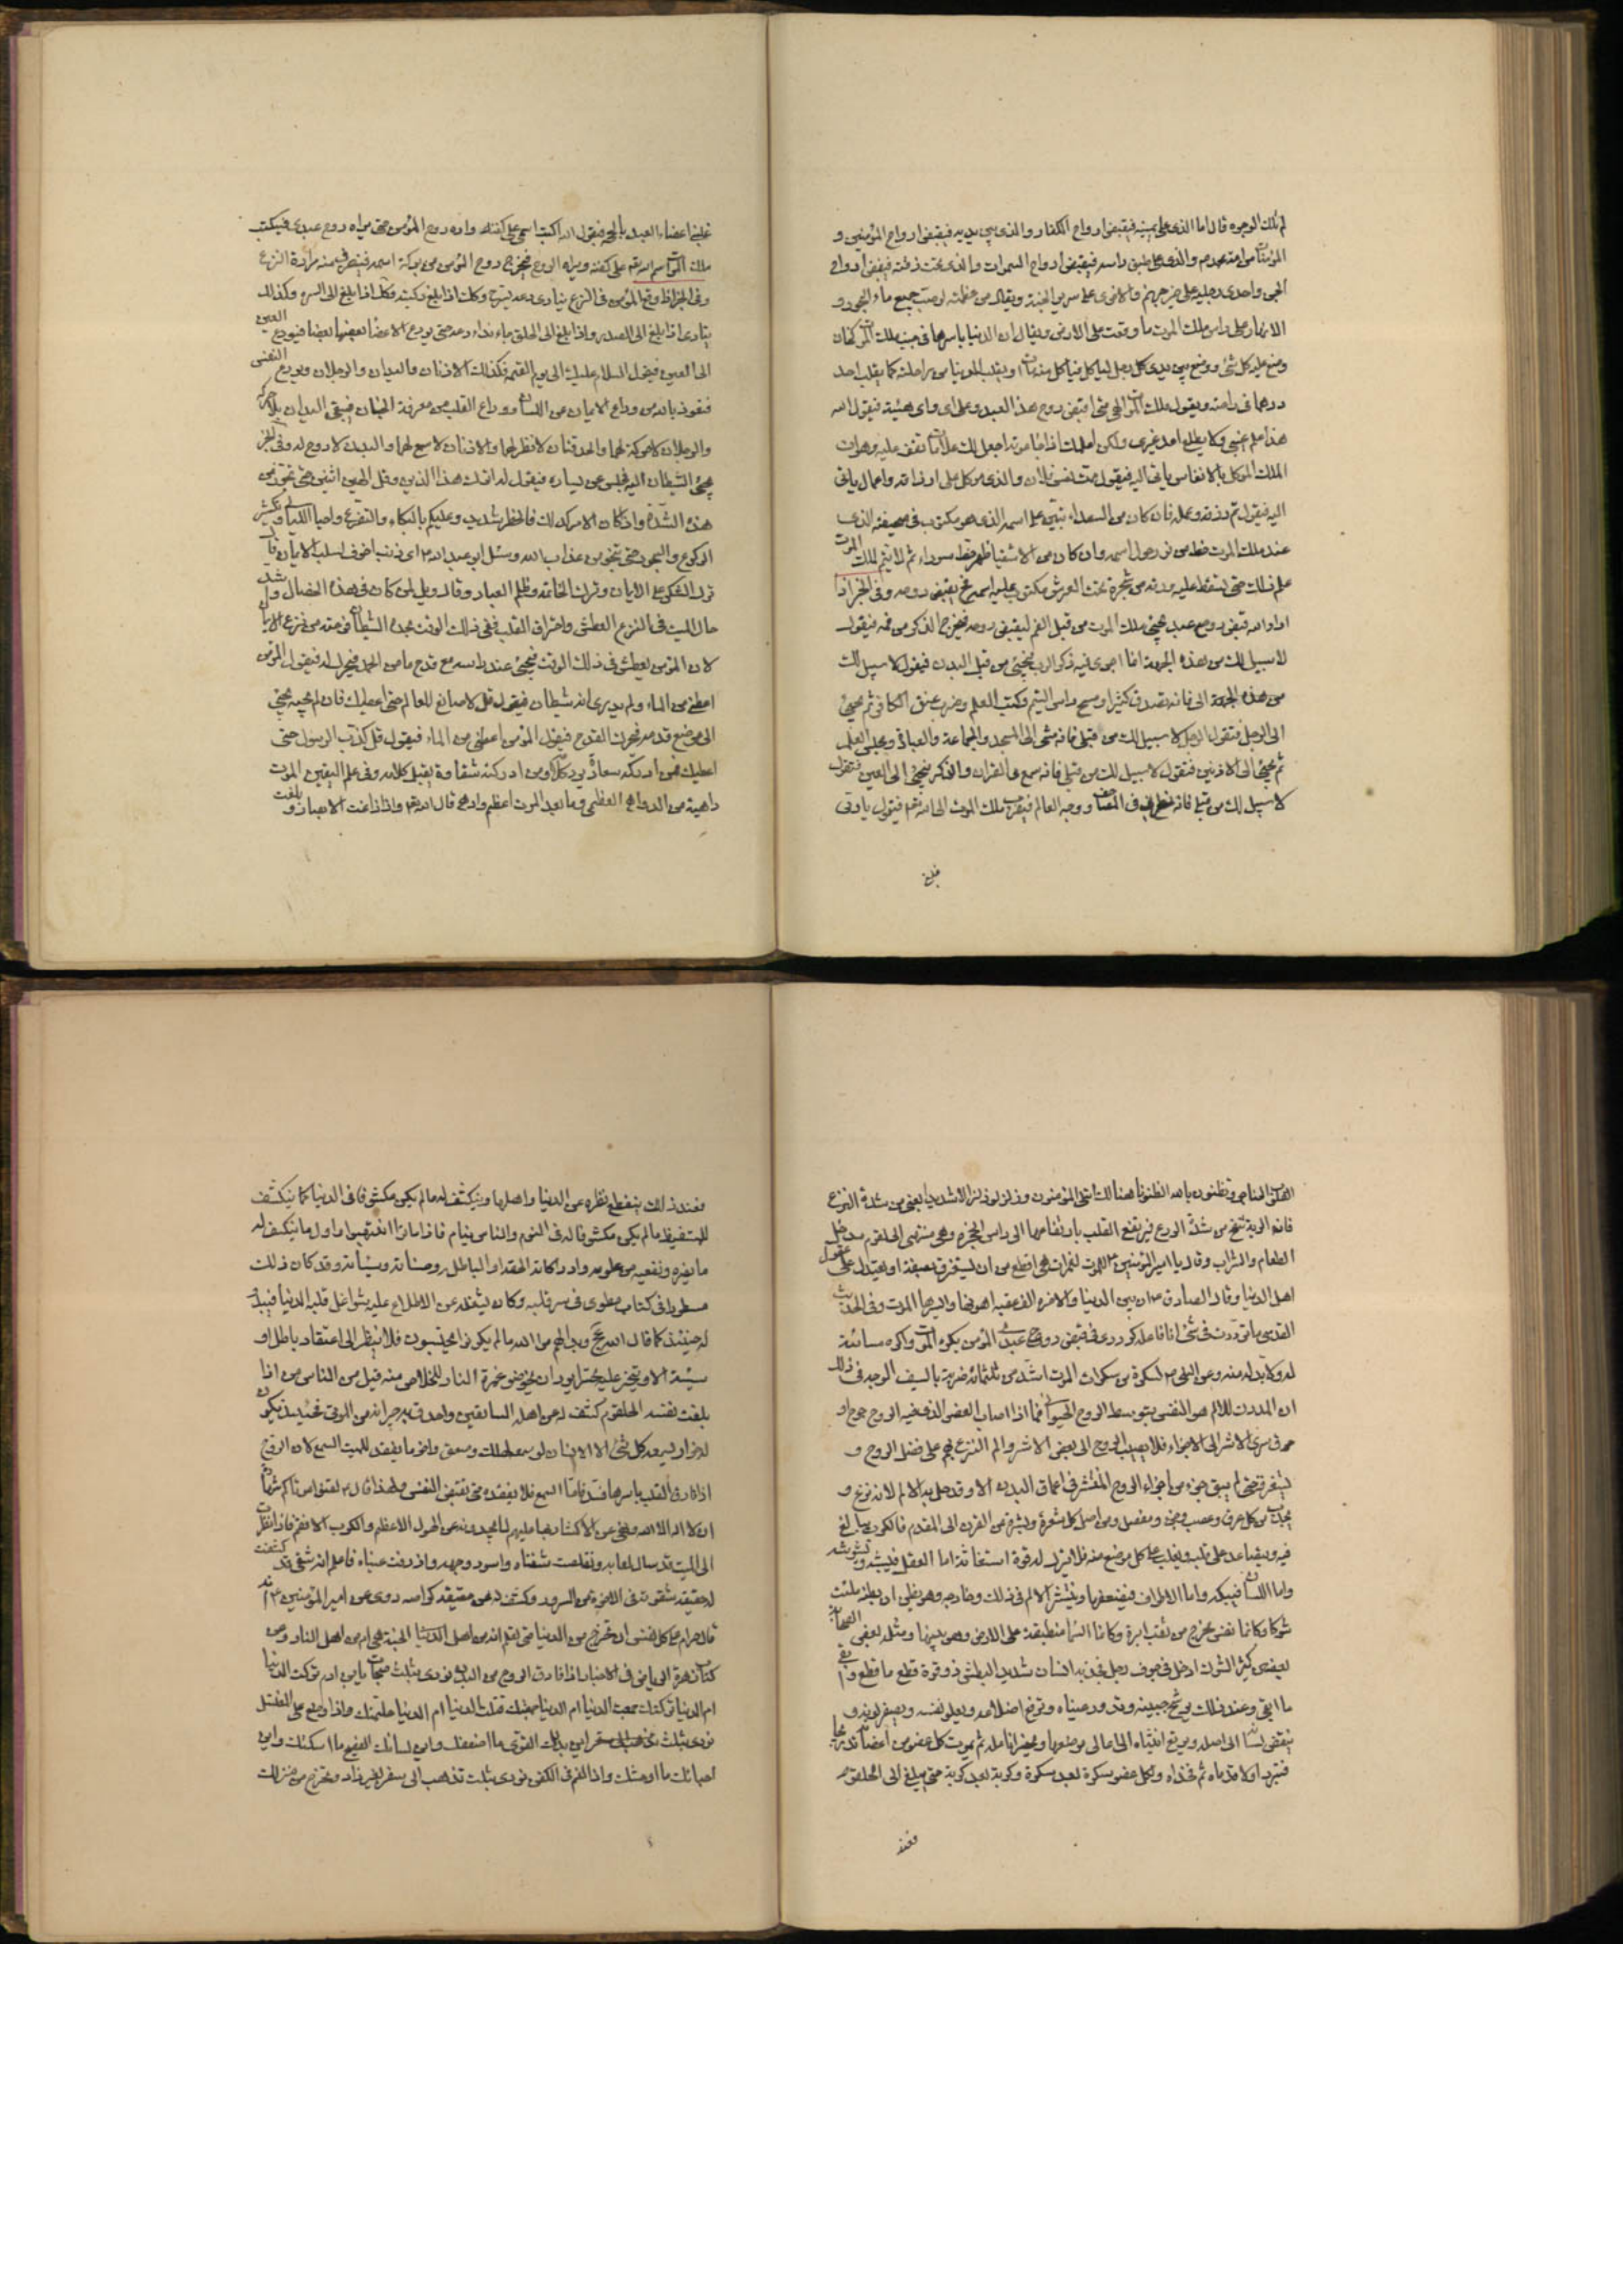 تلك الوجوه قال اما الذى على يمينه فيقبض ارواح الكفار والذى بين يديه فيقبض ارواح المؤمنين و
المؤمنات من امة محمد والذى على راسه فيقبض ارواح السموات والذى تحت ذقنه فيقبض ارواح
الجن واحدى رجليه على جهنم والاخرى على سرير الجنة ويقال من عظمته لو صب جميع ماء البحور و
الانهار على راس ملك الموت ما وقعت على الارض ويقال ان الدنيا باسرها فى جنب ملك الموت كخان
وضع عليه كل شئ ووضع بين يدى كل رجل لياكل فياكل منه ويقلب كما يقلب احد
درهما فى راحته ويقول ملك الموت الهى متى اقبض روح هذا العبد وعلى اى هيئة فيقول الله
هذا علم غيبى ولا يطلع احد غيرى ولكن اعلمك اذا حان موته اجعل لك علامات تقف عليه وهو ان
الملك الموكل بالانفاس ياتى اليه فيقول تمت نفس فلان والذى موكل على ارزاقه واعماله ياتى
اليه فيقول تم رزقه وعمله فان كان من السعداء تبين على اسمه الذى هو مكتوب فى صحيفته الذى
عند ملك الموت خط من نور حول اسمه وان كان من الاشقيا ظهر خط سوداء ثم لا يتم لملك الموت
علم ذلك حتى يسقط عليه ورقة من شجرة تحت العرش مكتوب عليه اسمه فح يقبض روحه وفى الخبر اذا
اراد الله قبض روح عبد يجئ ملك الموت من قبل الفم ليقبض روحه فيخرج الذكر من فمه فيقول
لا سبيل لك من هذه الجهة انما اجرى فيه ذكر الرب فيجئ من قبل اليدين فيقول لا سبيل لك
من هذه الجهة الى فانه تصدق كثيرا ومسح راس اليتيم وكتب العلم وضرب عنق الكافر ثم يجئ
الى الرجل فتقول الرجل لا سبيل لك من قبلى فانه مشى الى المسجد والجماعة والعبادة ومجلس العلم
ثم يجئ الى الاذنين فتقول لا سبيل لك من قبلى فانه سمع بى القران والذكر فيجئ الى العين فتقول
لا سبيل لك من قبلى فانه نظر بى فى المصاحف ووجه العالم فينصرف ملك الموت الى الله تعالى فيقول يا رب
غلبنى اعضاء العبد بالحجة فيقول الله اكتب اسمى على كفك واره روح المؤمن حتى يراه روح عبدى فيكتب
ملك الموت اسم الله تعالى على كفه ويراه الروح فيخرج روح المؤمن من بركة اسمه فينصرف منه مرارة النزع
وفى الخبر اذا وقع المؤمن فى النزع ينادى دعه يستريح وكذلك اذا بلغ ركبته وكذا اذا بلغ الى السره وكذلك
ينادى اذا بلغ الى الصدر واذا بلغ الى الحلق جاء نداء دعه حتى يودع الاعضا بعضها بعضا فيودع العين
الى العين فيقول السلام عليك الى يوم القيمة وكذلك الاذنان واليدان والرجلان ويودع النفس
فنعوذ بالله من وداع الايمان عن اللسان ووداع القلب من معرفة الجنان فيبقى اليدان بلا حركة
والرجلان لا حركة لهما والحدقتان لا نظر لهما والاذنان لا سمع لهما والبدن لا روح له وفى الخبر
يجئ الشيطان اليه فيجلس عن يساره فيقول له اترك هذا الدين وقل الهين اثنين حتى تنجو من
هذه الشدة واذا كان الامر كذلك فالخطر شديد وعليكم بالبكاء والتضرع واحياء الليالى وتكثير
الركوع والسجود حتى تنجو من عذاب الله وسئل ابو عبد الله اى ذنب اخوف لسلب الايمان قال
ترك الشكر على الايمان وترك الخاتمة وظلم العباد وقال ويل لمن كان فى هذه الخصال
حال الميت فى النزع العطش واحتراق القلب ففى ذلك الوقت يجد الشيطان فرصة من نزع الايمان
لان المؤمن يعطش فى ذلك الوقت فيجئ عند راسه مع قدح ماء من الجمد فيحرك له فيقول المؤمن
اعطنى من الماء ولم يدرى انه شيطان فيقول قل لا صانع للعالم حتى اعطيك فان لم يجبه يجئ
الى موضع قدمه فيحرك القدح فيقول المؤمن اعطنى من الماء فيقول قل كذب الرسول حتى
اعطيك فمن ادركته سعادة يرد كلامه ومن ادركته شقاوة يقبل كلامه وفى علم اليقين الموت
داهية من الدواهى العظمى وما بعد الموت اعظم وادهى قال الله تعالى واذ زاغت الابصار وبلغت
القلوب الحناجر وتظنون بالله الظنونا هنالك ابتلى المؤمنون وزلزلوا زلزالا شديدا يعنى من شدة النزع
فانه الرية تنتفخ من شدة الروع فيرتفع القلب بارتفاعها الى راس الحنجرة وهى منتهى الحلقوم مدخل
الطعام والشراب وقال يا امير المؤمنين للموت لغمرات هى افظع من ان تستغرق بصفة او يعتدل على عقول
اهل الدنيا وقال الصادق ان بين الدنيا والاخرة الف عقبة اهونها وايسرها الموت وفى الحديث
القدسى ما ترددت فى شئ انا فاعله كترددى فى قبض روح عبدى المؤمن يكره الموت واكره مسائته
له ولا بد له منه وعن النبى لسكرة من سكرات الموت اشد من ثلثمائة ضربة بالسيف الوجه فى ذلك
ان المدرك للالم هو النفس بتوسط الروح الحيوانى فما اذا اصاب العضو الذى فيه الروح جرح او
سرى الاثر الى الاجزاء فلا يصيب الروح الى بعض الاثر والم النزع يهجم على فضل الروح و
يستغرقه حتى لم يبق جزء من اجزاء الروح المنتشر فى اعماق البدن الا وقد حل به الالم لانه نزع و
يجذب من كل عرق وعصب ومفصل ومن اصل كل شعرة وبشرة من القرن الى القدم فالكرب يبالغ
فيه ويتصاعد على قلب ويغلب على كل موضع منه فلا يترك له قوة استغاثة اما العقل فيشده ويشوشه
واما اللسان فيبكه واما الاطراف فيضعفها وينتشر الالم فى ذلك وخارجه وهو يظن ان بطنه ملئت
شوكا وكانما نفس يخرج من ثقب ابرة وكانما السماء منطبقة على الارض وهو بينهما ومثله بعض الصحابة
بغصن كثير الشوك ادخل فى جوف رجل فجذبه انسان شديد البطش ذو قوة قطع ما قطع وابقى
ما ابقى وعند ذلك يرشح جبينه وتدور عيناه وترتفع اضلاعه ويعلو نفسه ويصفر لونه و
يتقلص لسانه الى اصله ويرتفع انثياه الى اعالى موضعها ويخضر انامله ثم يموت كل عضو من اعضائه تدريجا
فتبرد اولا قدماه ثم فخذاه ولكل عضو سكرة بعد سكرة وكربة بعد كربة حتى يبلغ الى الحلقوم
فعند
فعند ذلك ينقطع نظره عن الدنيا واهلها وينكشف له ما لم يكن مكشوفا فى الدنيا كما ينكشف
للمتيقظ ما لم يكن مكشوفا له فى النوم والناس نيام فاذا ماتوا انتبهوا واول ما ينكشف له
ما يضره وينفعه من علومه وادراكاته الحقة او الباطلة وحسناته وسيئاته وقد كان ذلك
مسطورا فى كتاب مطوى فى سر قلبه وكان يشغله عن الاطلاع عليه شواغل قلبه الدنيا فيبدو
له حينئذ كما قال الله عج وبدا لهم من الله ما لم يكونوا يحتسبون فلا ينظر الى اعتقاد باطل او
سيئة الا ويتحسر عليه يختار ان يخوض غمرة النار للخلاص منه قيل من الناس من اذا
بلغت نفسه الحلقوم كشف له عن اهله السابقين واحدق به جيرانه من الموتى فحينئذ يكون
له خوار يسمعه كل شئ الا الانسان لو سمعه لهلك وصعق واخر ما يفقد للميت السمع لان الروح
اذا فارق القلب باسرها فسد فاما السمع فلا يفقده حتى تقبض النفس ولهذا قال لقنوا موتاكم شهادة
ان لا اله الا الله ونهى عن الاكثار بها عليهم لما يجدونه من الهول الاعظم والكرب الافخم فاذا نظرت
الى الميت قد سال لعابه وتقلصت شفتاه واسود وجهه وازرقت عيناه فاعلم انه شقى قد كشفت
له حقيقة شقوته فى الاخرة روى عن امير المؤمنين انه
قال حرام على كل نفس ان تخرج من الدنيا حتى تعلم انه من اهل الجنة هى ام من اهل النار وعن
كتاب زهرة الرياض فى الاخبار اذا فارق الروح من البدن نودى بثلث صيحات يابن ادم تركت الدنيا
ام الدنيا تركتك جمعت الدنيا ام الدنيا جمعتك قتلت الدنيا ام الدنيا قتلتك واذا وضع على المغتسل
نودى بثلث اين بدنك القوى ما اضعفك واين لسانك الفصيح ما اسكتك واين
احباؤك ما اوحشك واذا وضع فى الكفن نودى بثلث تذهب الى سفر بغير زاد وتخرج من منزلك